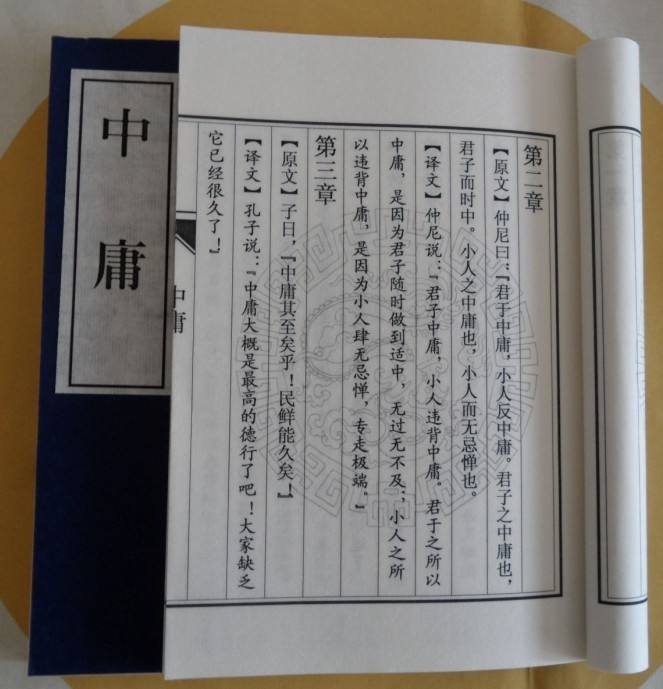 第二章
【原文】仲尼曰：『君于中庸，小人反中庸。君子之中庸也，
君子而时中。小人之中庸也，小人而无忌惮也。
【译文】仲尼说：『君子中庸，小人违背中庸。君于之所以
中庸，是因为君子随时做到适中，无过无不及；小人之所
以违背中庸，是因为小人肆无忌惮，专走极端。』
第三章
【原文】子曰，『中庸其至矣乎！民鲜能久矣！』
【译文】孔子说：『中庸大概是最高的德行了吧！大家缺乏
它已经很久了！』
中庸
中庸